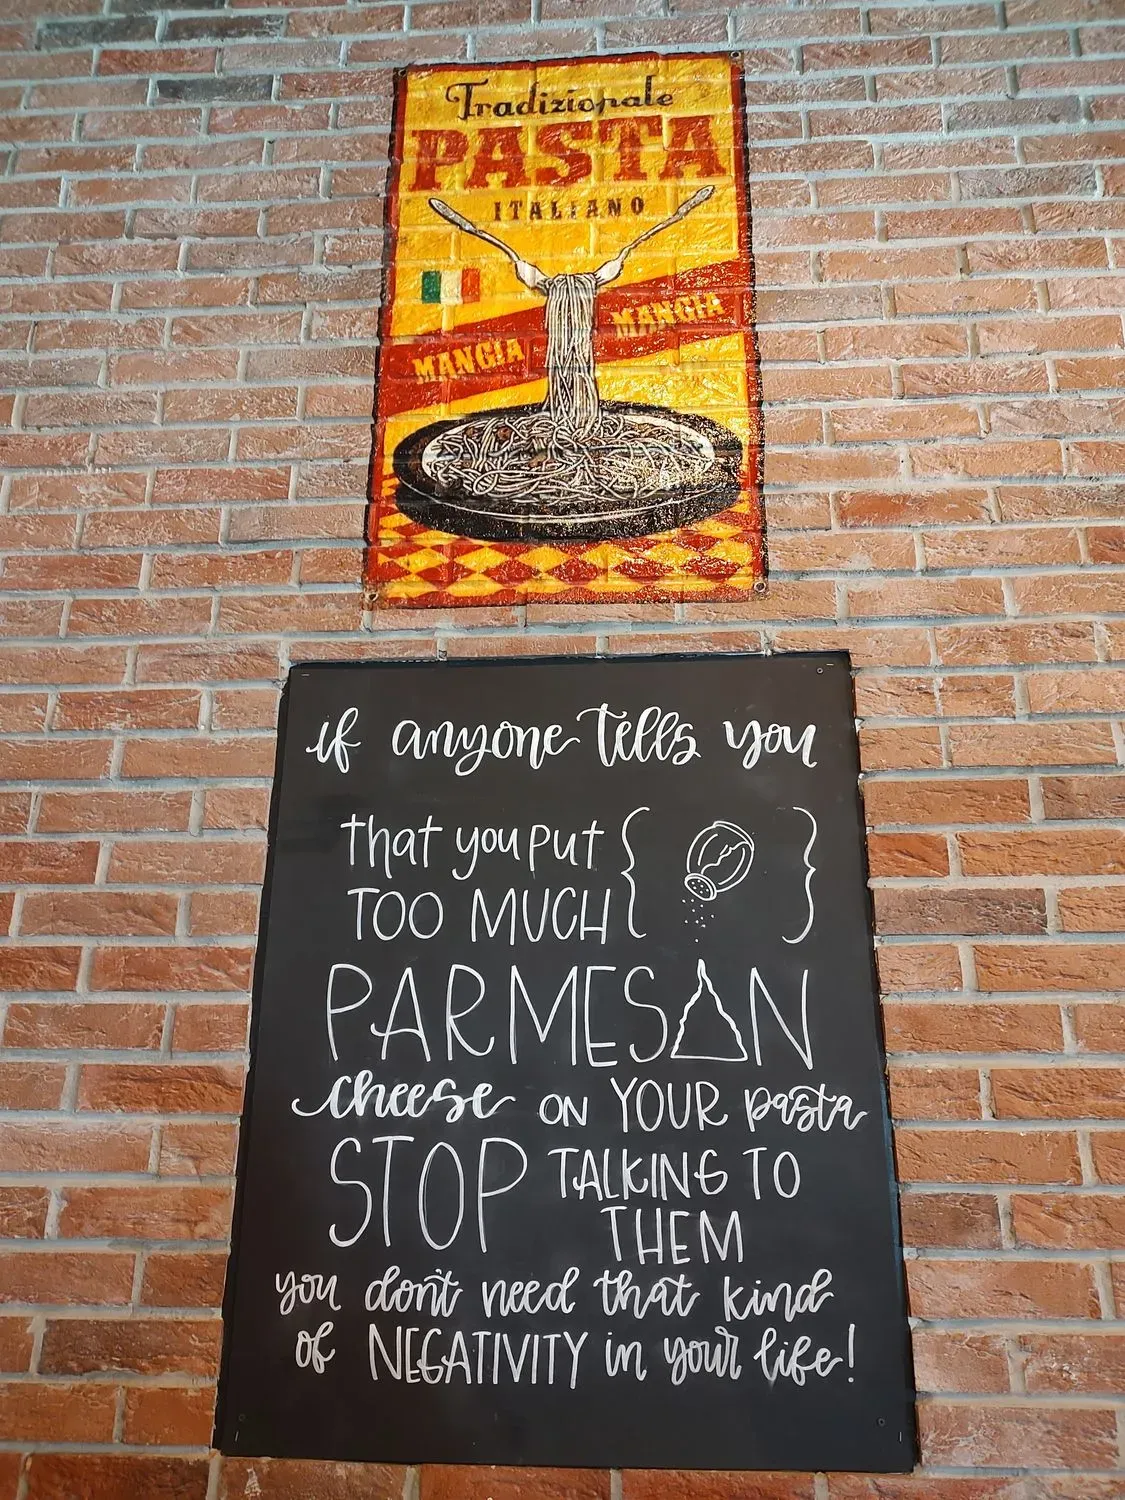 Tradizionale
PASTA
ITALIANO
MANGIA MANGIA
if anyone tells you
that you put
TOO MUCH
PARMESAN
cheese ON YOUR pasta
STOP TALKING TO
THEM
you don't need that kind
of NEGATIVITY in your life!